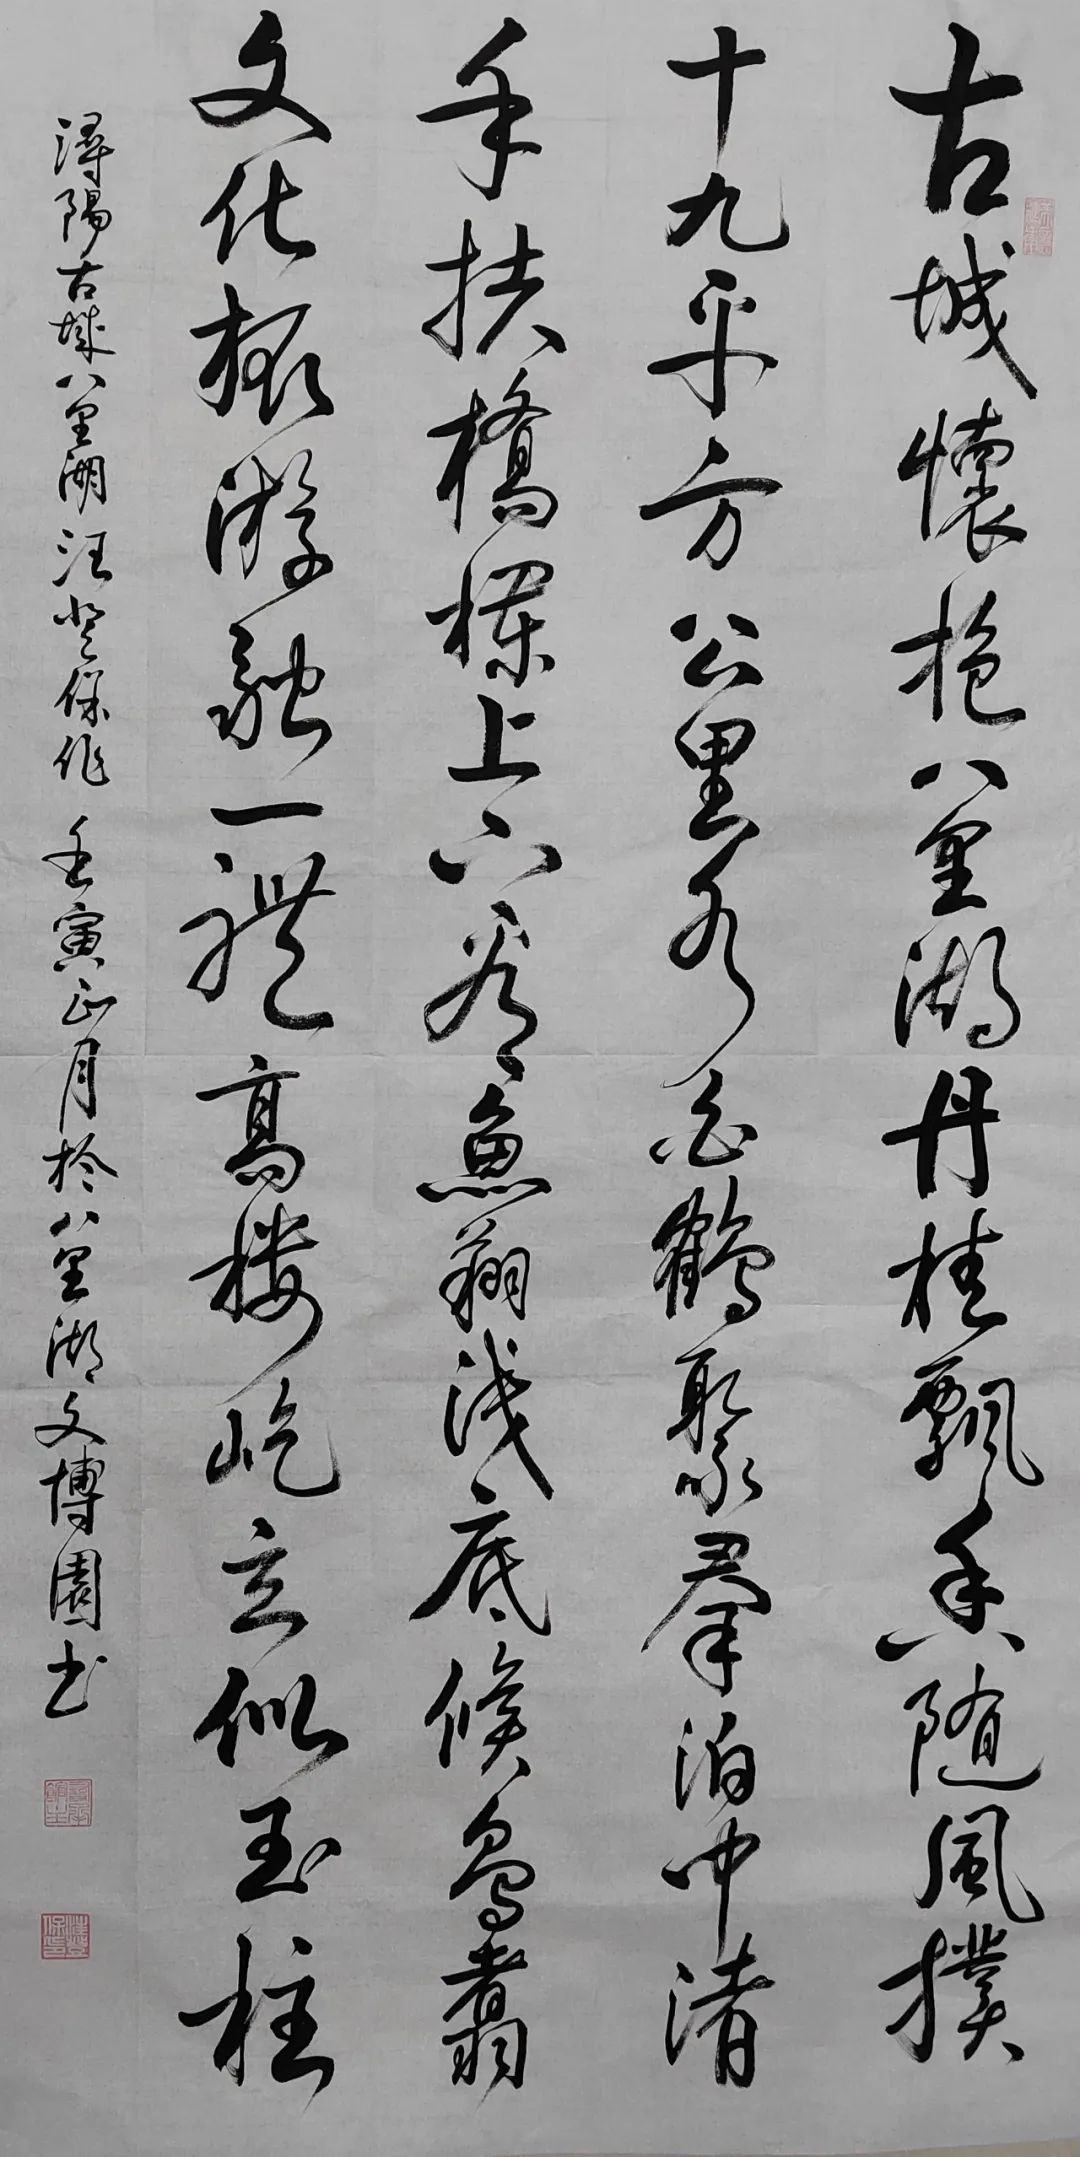 古城懷抱八里湖丹桂飄香随風撲
十九平方公里水白鶴聚羣泊中渚
手扶橋欄上下看魚翔浅底候鳥翥
文化旅游融一體高楼屹立似玉柱
潯陽古城八里湖汪登保作壬寅正月於八里湖文博園书